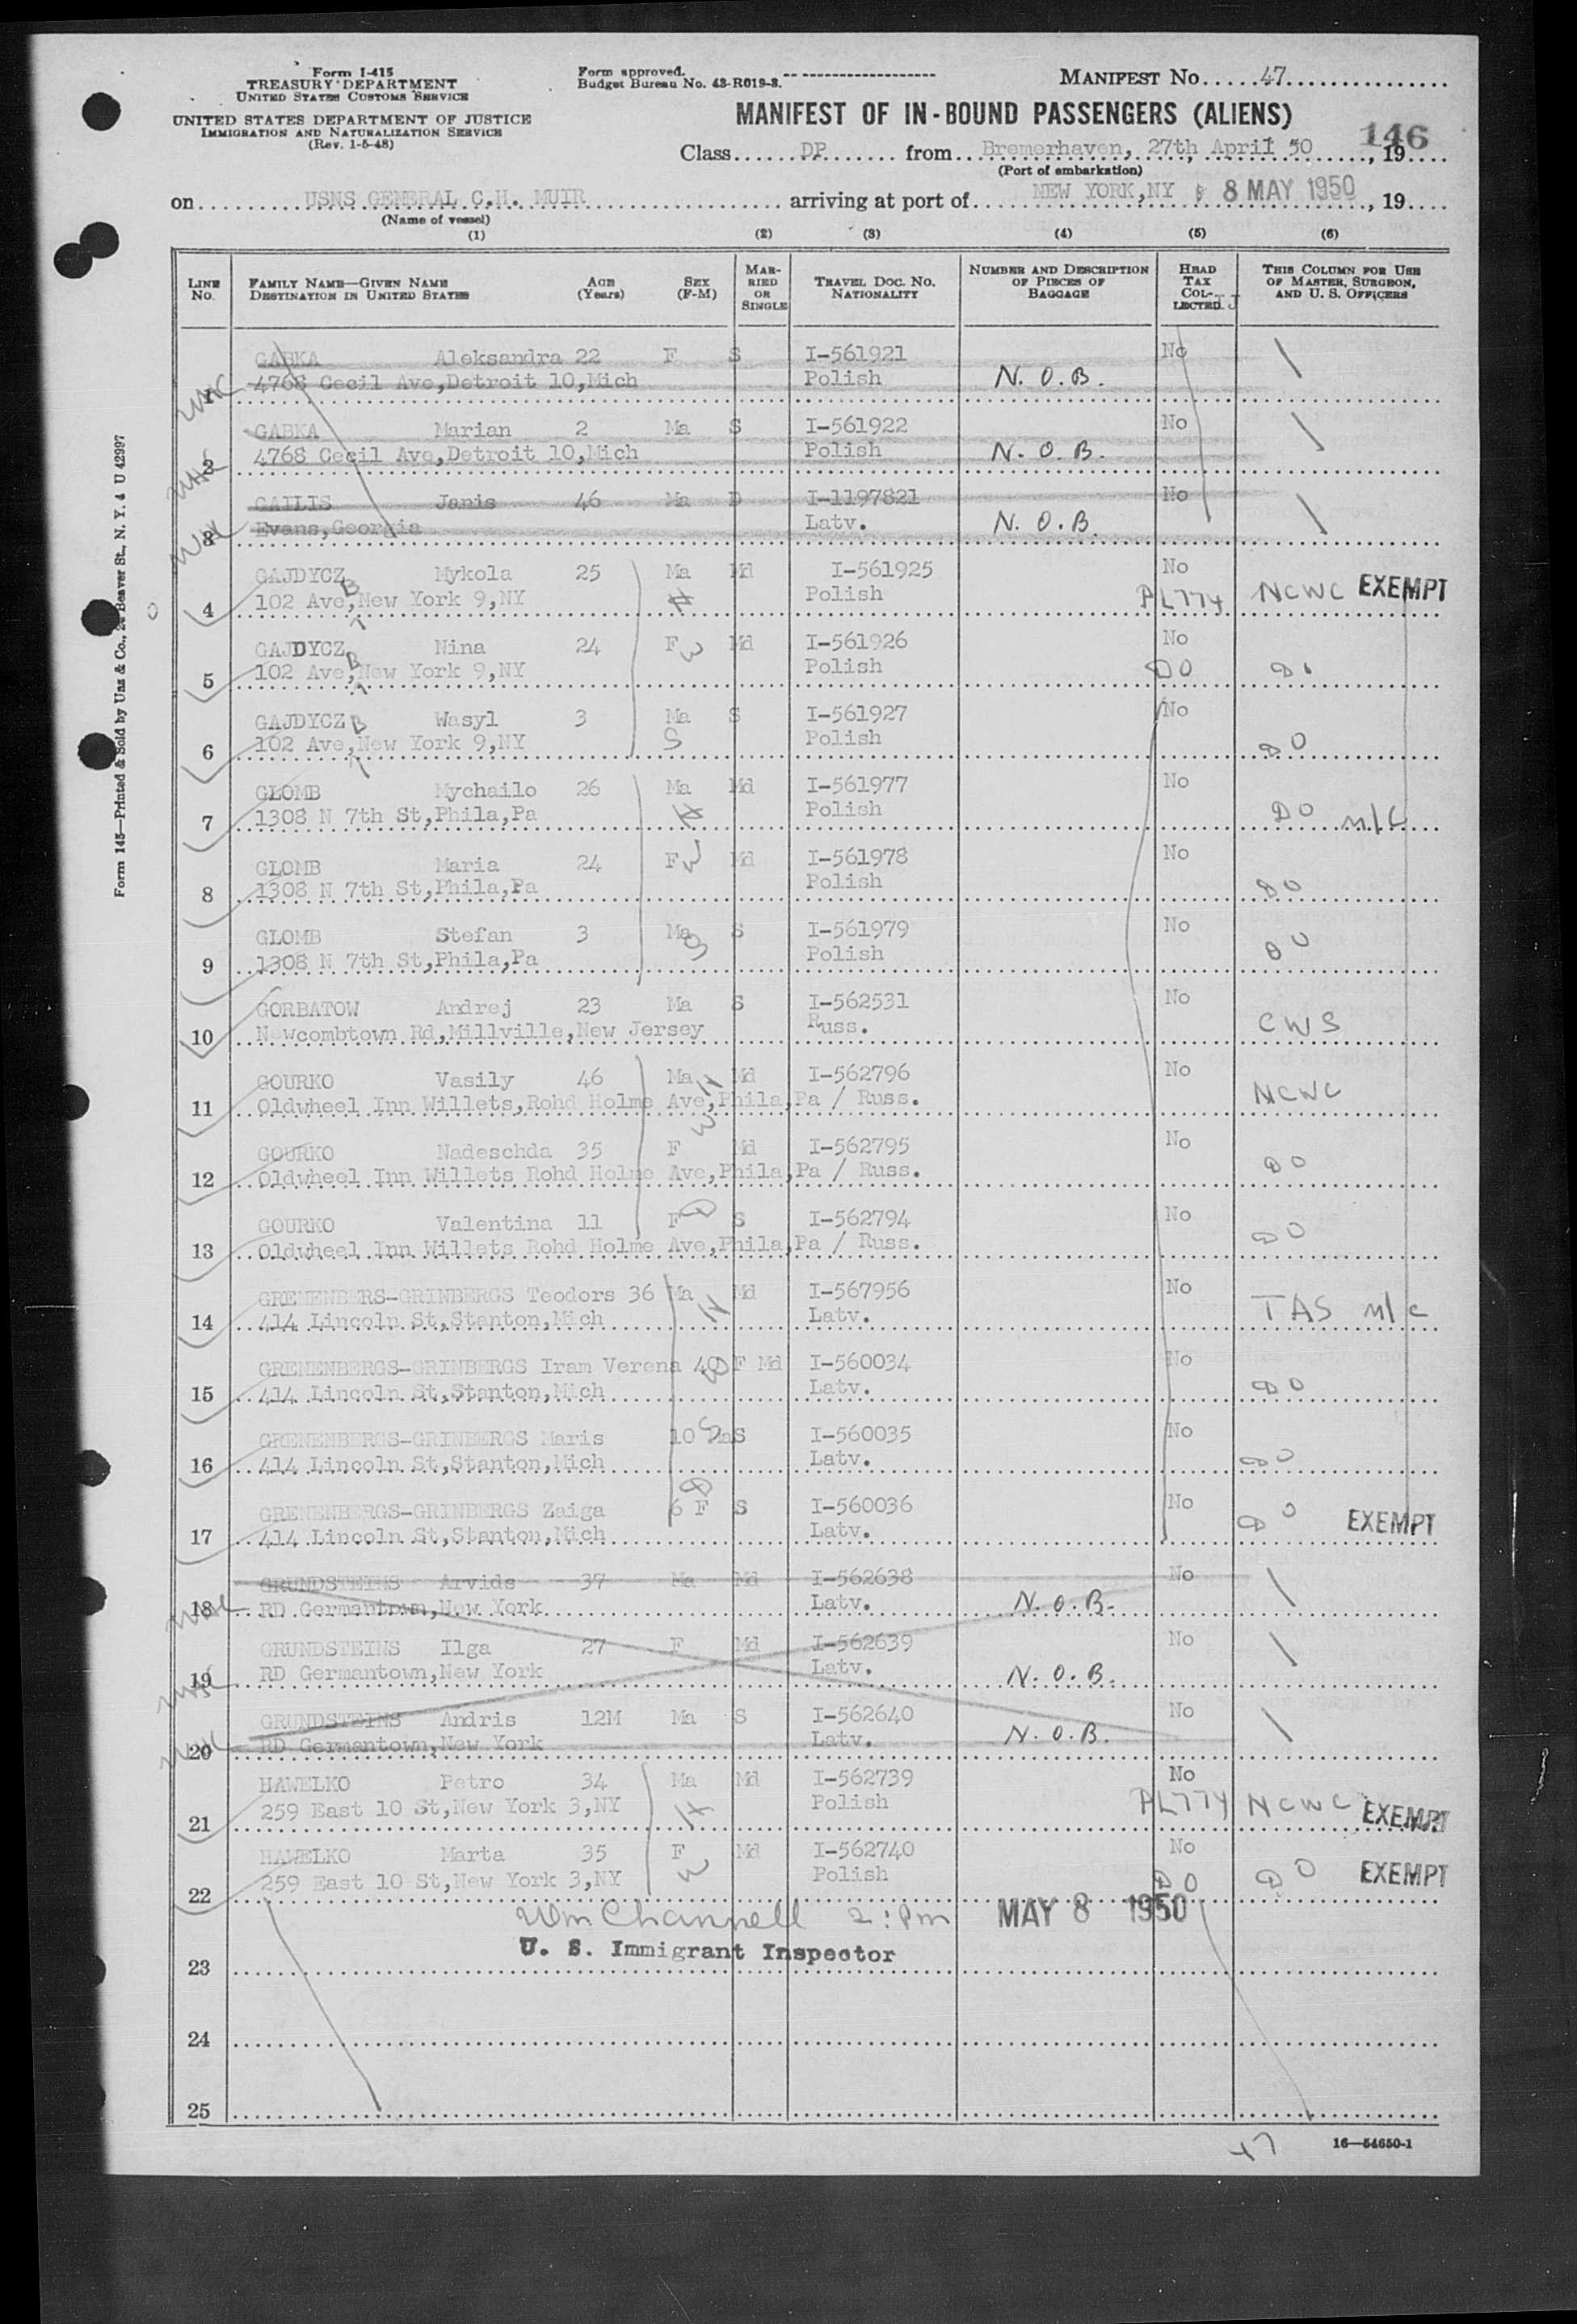 Form I-415
TREASURY DEPARTMENT
UNITED STATES CUSTOMS SERVICE
UNITED STATES DEPARTMENT OF JUSTICE
IMMIGRATION AND NATURALIZATION SERVICE
(Rev. 1-5-48)
Form approved.
Budget Bureau No. 43-R019-3.
MANIFEST No. 47
MANIFEST OF IN-BOUND PASSENGERS (ALIENS)
146
Class DP from Bremerhaven, 27th April 50, 19
(Port of embarkation)
on USNS GENERAL C.H. MUIR arriving at port of NEW YORK,NY 8 MAY 1950, 19
(Name of vessel)
(1) (2) (3) (4) (5) (6)
LINE No. FAMILY NAME—GIVEN NAME DESTINATION IN UNITED STATES AGE (Years) SEX (F-M) MARRIED OR SINGLE TRAVEL DOC. NO. NATIONALITY NUMBER AND DESCRIPTION OF PIECES OF BAGGAGE HEAD TAX COLLECTED THIS COLUMN FOR USE OF MASTER, SURGEON, AND U. S. OFFICERS
GABKA Aleksandra 22 F S I-561921 No
1 4768 Cecil Ave,Detroit 10,Mich Polish N. O. B.
GABKA Marian 2 Ma S I-561922 No
2 4768 Cecil Ave,Detroit 10,Mich Polish N. O. B.
GAILIS Janis 46 Ma D I-1197821 No
3 Evans,Georgia Latv. N. O. B.
GAJDYCZ Mykola 25 Ma Md I-561925 No
4 102 Ave B,New York 9,NY H Polish PL774 NCWC EXEMPT
GAJDYCZ Nina 24 F W Md I-561926 No
5 102 Ave B,New York 9,NY Polish DO DO
GAJDYCZ Wasyl 3 Ma S I-561927 No
6 102 Ave B,New York 9,NY S Polish DO
GLOMB Mychailo 26 Ma Md I-561977 No
7 1308 N 7th St,Phila,Pa H Polish DO M/C
GLOMB Maria 24 F W Md I-561978 No
8 1308 N 7th St,Phila,Pa Polish DO
GLOMB Stefan 3 Ma S S I-561979 No
9 1308 N 7th St,Phila,Pa Polish DO
GORBATOW Andrej 23 Ma S I-562531 No
10 Newcombtown Rd,Millville,New Jersey Russ. CWS
GOURKO Vasily 46 Ma H Md I-562796 No
11 Oldwheel Inn Willets,Rohd Holme Ave,Phila,Pa / Russ. NCWC
GOURKO Nadeschda 35 F W Md I-562795 No
12 Oldwheel Inn Willets Rohd Holme Ave,Phila,Pa / Russ. DO
GOURKO Valentina 11 F D S I-562794 No
13 Oldwheel Inn Willets Rohd Holme Ave,Phila,Pa / Russ. DO
GRENENBERS-GRINBERGS Teodors 36 Ma H Md I-567956 No
14 414 Lincoln St,Stanton,Mich Latv. TAS M/C
GRENENBERGS-GRINBERGS Iram Verena 40 F Md I-560034 No
15 414 Lincoln St,Stanton,Mich Latv. DO
GRENENBERGS-GRINBERGS Maris 10 S Ma S I-560035 No
16 414 Lincoln St,Stanton,Mich Latv. DO
GRENENBERGS-GRINBERGS Zaiga 6 F D S I-560036 No
17 414 Lincoln St,Stanton,Mich Latv. DO EXEMPT
GRUNDSTEINS Arvids 37 Ma Md I-562638 No
18 RD Germantown,New York Latv. N. O. B.
GRUNDSTEINS Ilga 27 F Md I-562639 No
19 RD Germantown,New York Latv. N. O. B.
GRUNDSTEINS Andris 12M Ma S I-562640 No
20 RD Germantown,New York Latv. N. O. B.
HAWELKO Petro 34 Ma Md I-562739 No
21 259 East 10 St,New York 3,NY H Polish PL774 NCWC EXEMPT
HAWELKO Marta 35 F Md I-562740 No
22 259 East 10 St,New York 3,NY W Polish DO DO EXEMPT
Wm Channell 2:pm MAY 8 1950
U. S. Immigrant Inspector
23
24
25
47 16—54650-1
Form 145—Printed & Sold by Unz & Co., 24 Beaver St., N. Y. 4 U 42997